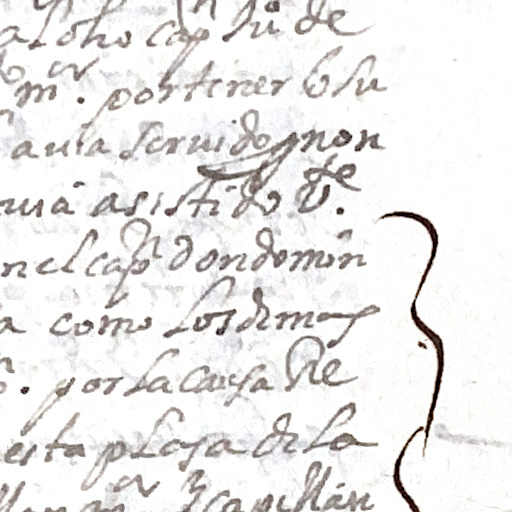 al dho capn Ju de
mor. por tener Vsu
auia seruido y non
uiā asistido Vte.
n el capn Don domīn
a como los demas
por la causa Re
esta plasa de la
capillan